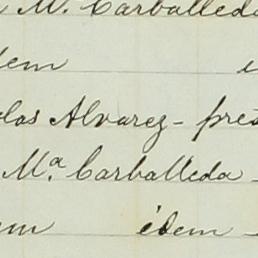 M. Carballeda
idem
Alvarez - pres
M.ª Carballeda -
idem -